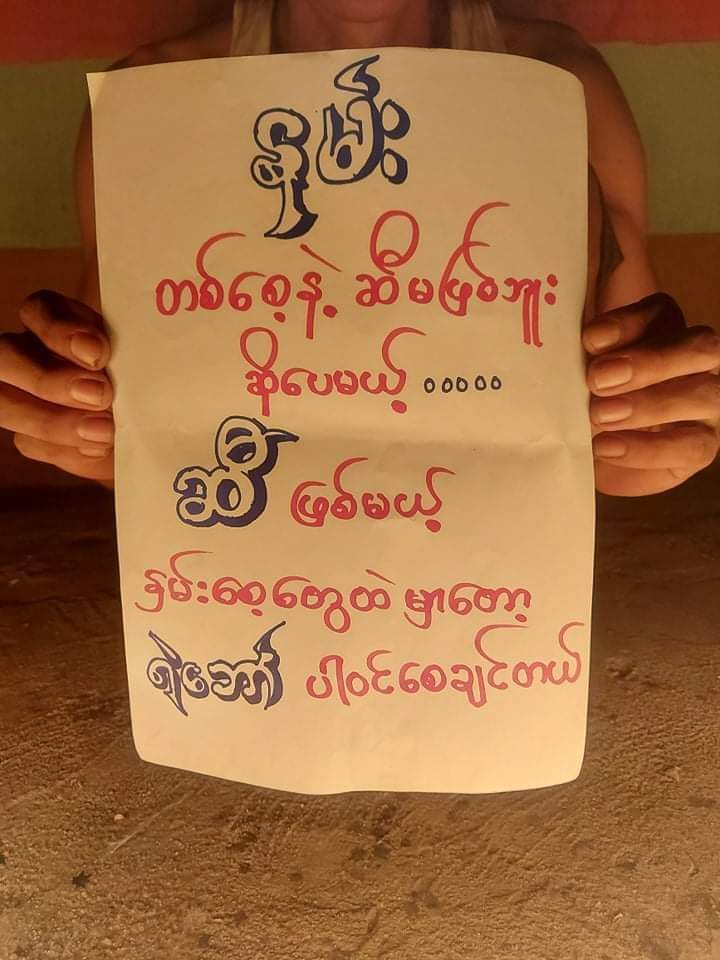 နှမ်း
တစ်စေ့နဲ့ ဆီမဖြစ်ဘူး
ဆိုပေမယ့် ၀၀၀၀၀
ဆီ ဖြစ်မယ့်
နှမ်းစေ့တွေထဲ မှာတော့
ရဲဘော် ပါဝင်စေချင်တယ်